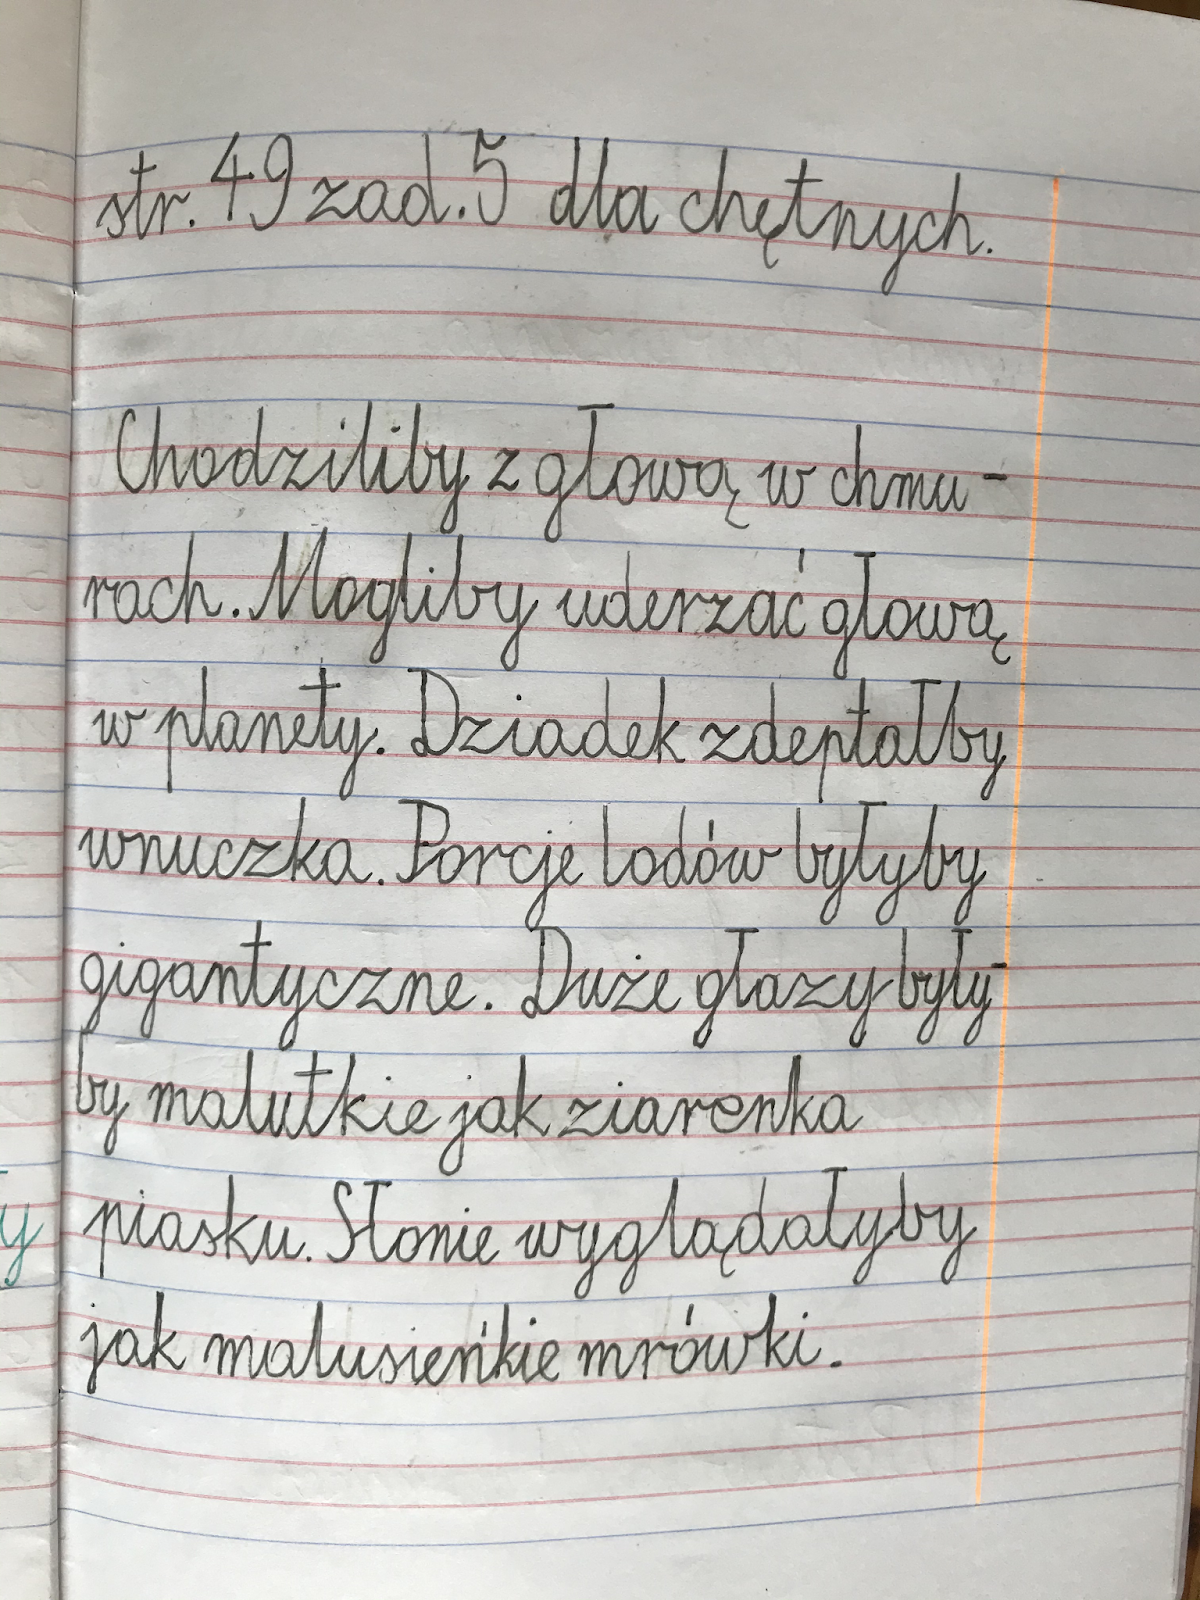 str. 49 zad. 5 dla chętnych.
Chodziliby z głową w chmu-
rach. Mogliby uderzać głową
w planety. Dziadek zdeptałby
wnuczka. Porcje lodów byłyby
gigantyczne. Duże głazy były-
by malutkie jak ziarenka
piasku. Słonie wyglądałyby
jak malusieńkie mrówki.
y